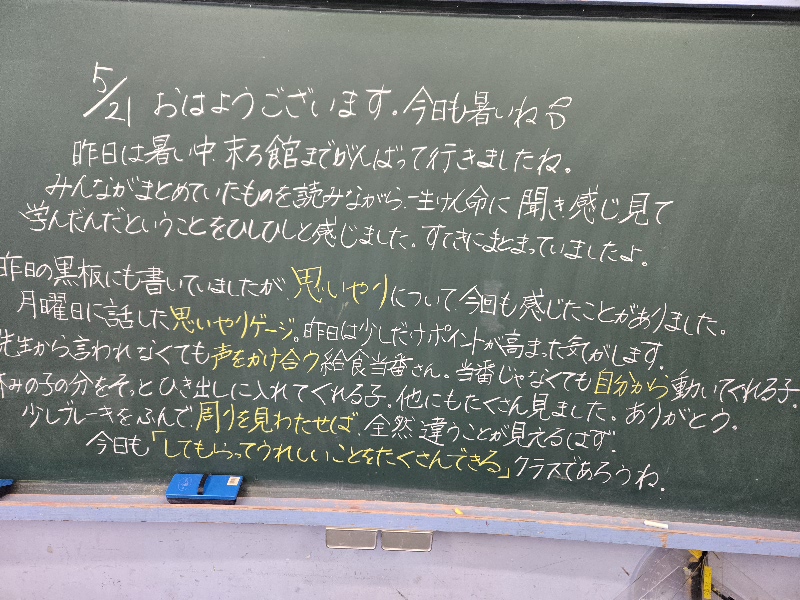 5/21 おはようございます。今日も暑いね
昨日は暑い中、末ろ館までがんばって行きましたね。
みんながまとめていたものを読みながら、一生けん命に 聞き、感じ、見て
学んだんだということをひしひしと感じました。すてきにまとまっていましたよ。
昨日の黒板にも書いていましたが、思いやりについて、今回も感じたことがありました。
月曜日に話した思いやりゲージ。昨日は少しだけポイントが高まった気がします。
先生から言われなくても声をかけ合う給食当番さん。当番じゃなくても自分から動いてくれる子。
休みの子の分をそっとひき出しに入れてくれる子。他にもたくさん見ました。ありがとう。
少しブレーキをふんで、周りを見わたせば、全然違うことが見えるはず。
今日も「してもらってうれしいことをたくさんできる」クラスであろうね。